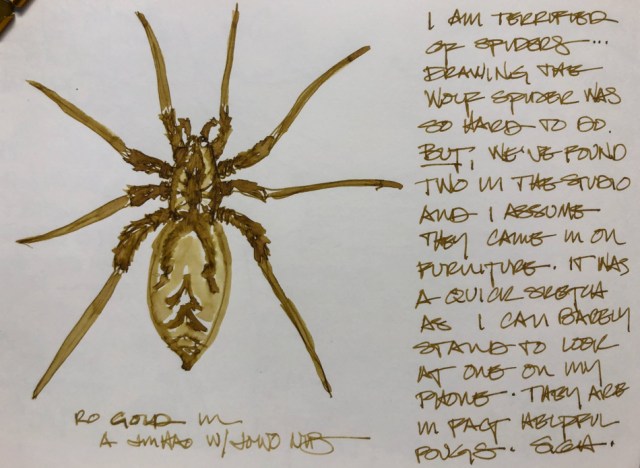 I AM TERRIFIED
OF SPIDERS...
DRAWING THE
WOLF SPIDER WAS
SO HARD TO DO.
BUT, WE'VE FOUND
TWO IN THE STUDIO
AND I ASSUME
THEY CAME IN ON
FURNITURE. IT WAS
A QUICK SKETCH
AS I CAN BARELY
STAND TO LOOK
AT ONE ON MY
PHONE. THEY ARE
IN FACT HELPFUL
SIGH.
RO GOLD IN
A JINHAO W/ JOWO NIB